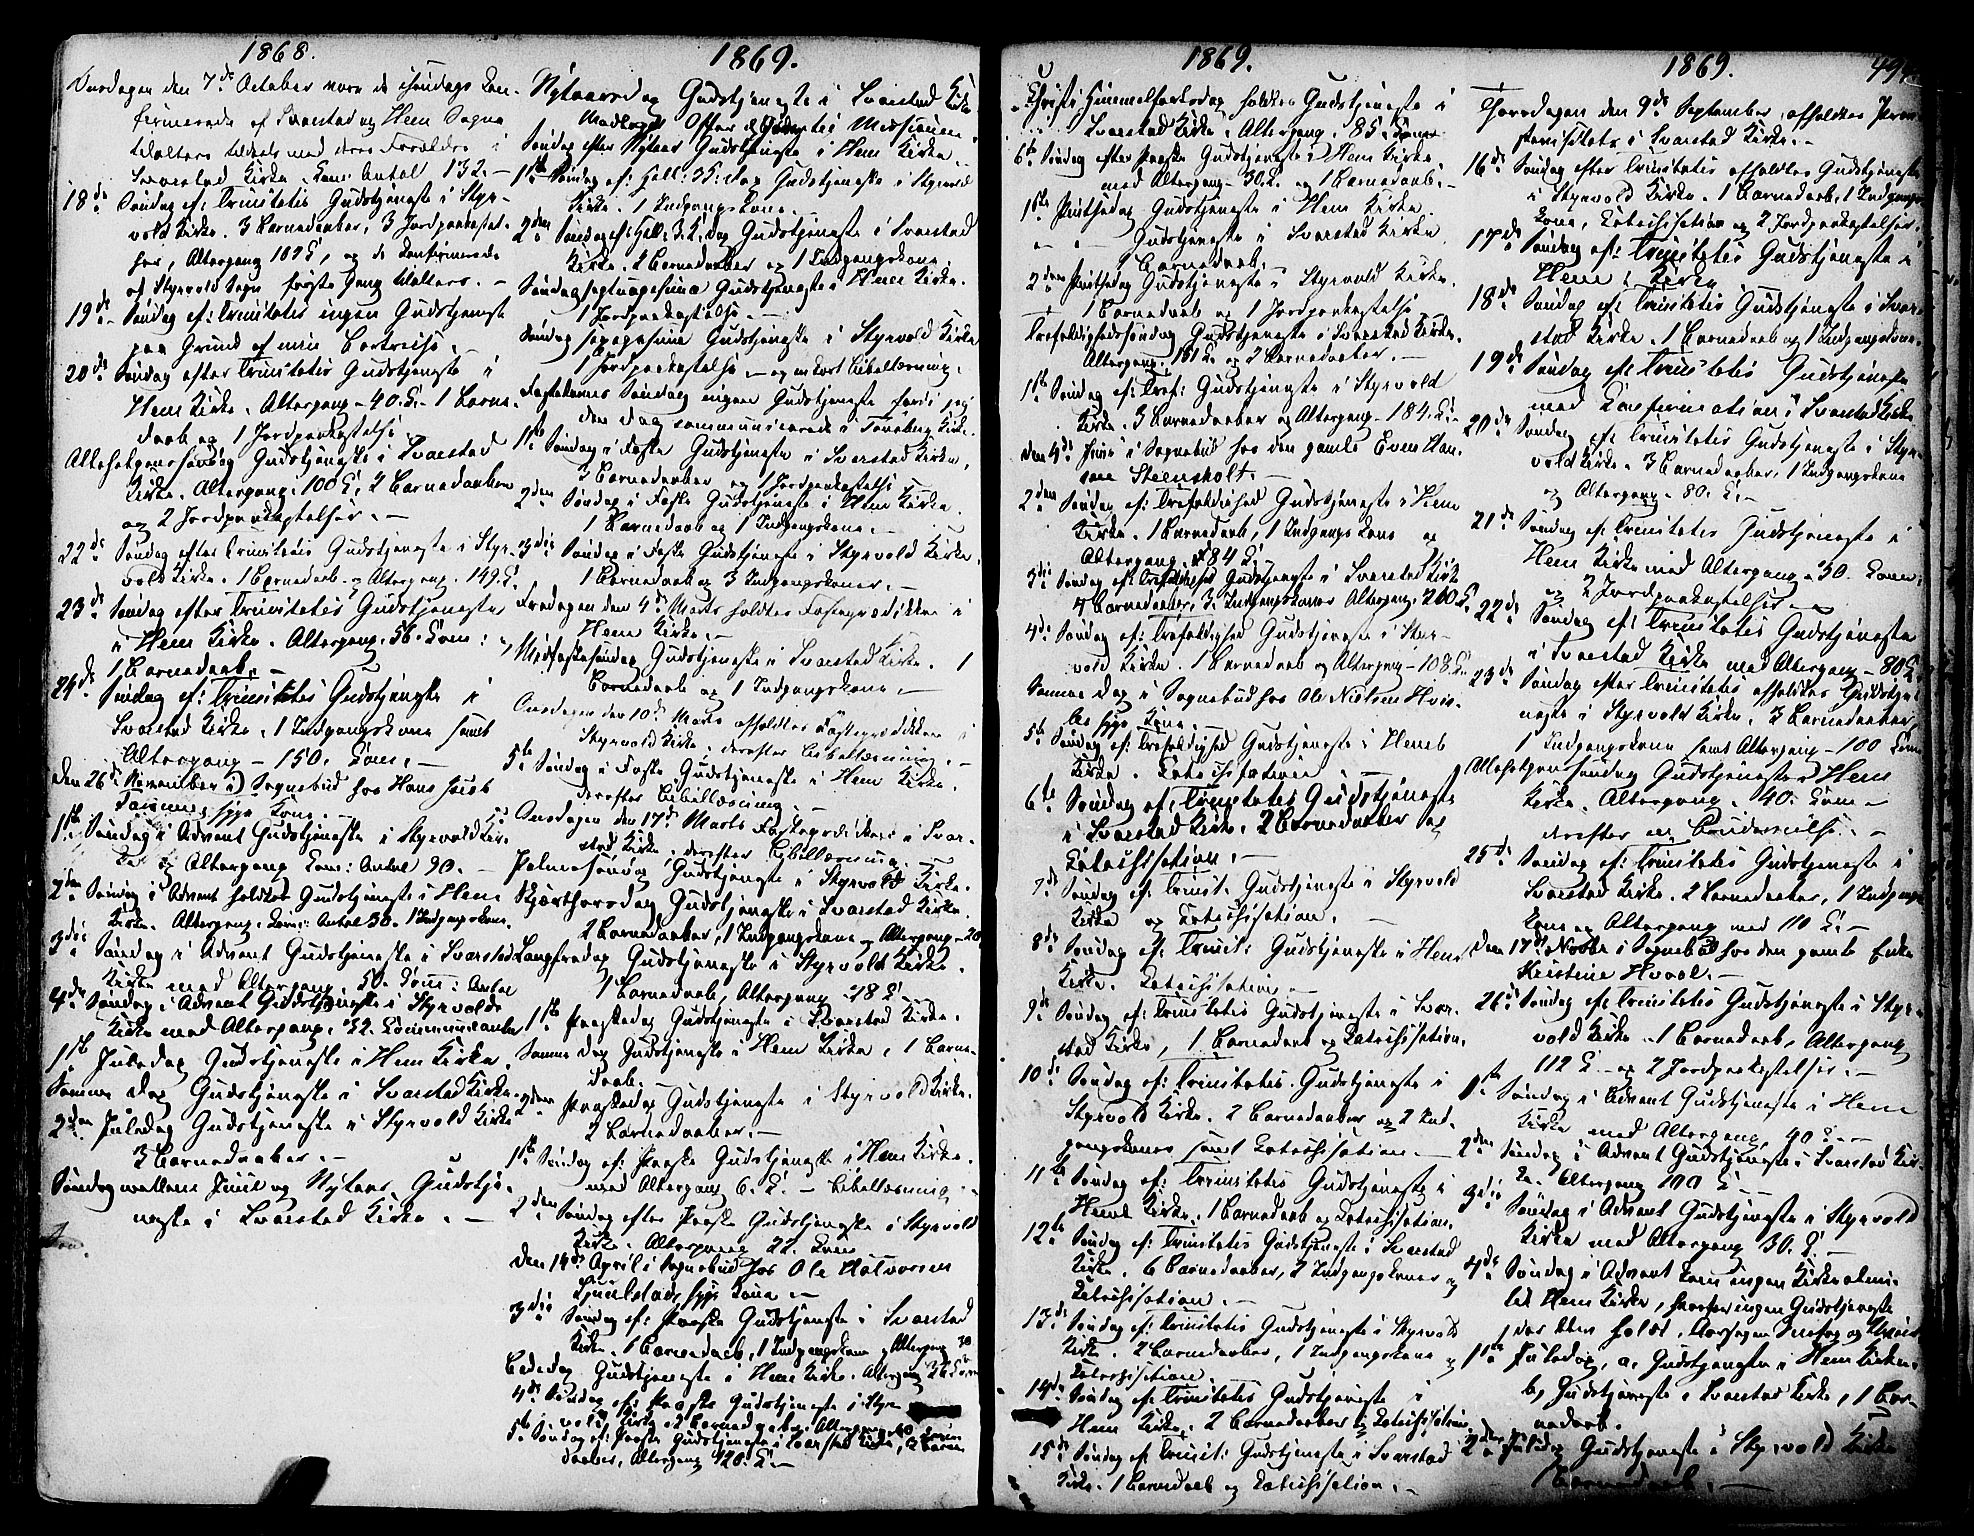 1868.
Onsdagen den 7de October vare de Søndags Con-
firmerede af Svarstad og Hem Sogne
tilalters tildeels med deres Forældre i
Svarstad Kirke. Com: Antal 132. –
18de Søndag ef: Trinitatis Gudstjeneste i Styr-
vold Kirke. 3 Barnedaaber, 3 Jordpaakastel-
ser, Altergang, og de Confirmerede
af Styrvold Sogn første Gang tilalters. –
19de Søndag ef: Trinitatis ingen Gudstjeneste
paa Grund af min Bortreise.
20de Søndag efter Trinitatis Gudstjeneste i
Hem Kirke. Altergang – 40. C. – 1 Barne-
daab og 1 Jordpaakastelse.
Allehelgenssøndag Gudstjeneste i Svarstad
Kirke. Altergang. 100 C. 2 Barnedaaber
og 2 Jordpaakastelser. –
22de Søndag efter Trinitatis Gudstjeneste i Styr-
vold Kirke. 1 Barnedaab og Altergang. 149. C.
23de Søndag efter Trinitatis Gudstjeneste
i Hem Kirke. Altergang. 56. Com:
1 Barnedaab. –
24de Søndag ef: Trinitatis Gudstjeneste i
Svarstad Kirke. 1 Indgangskone samt
Altergang – 150. Com. –
Den 26de November i Sognebud hos Hans Jacob
syge Kone. –
1ste Søndag i Advent Gudstjeneste i Styrvold Kir-
ke og Altergang Com: Antal 90. –
2den Søndag i Advent holdtes Gudstjeneste i Hem
Kirke. Altergang. Com: Antal 30. 1 Indgangskone.
3die Søndag i Advent Gudstjeneste i Svarstad
Kirke med Altergang. 50. Com: Antal
4de Søndag i Advent Gudstjeneste i Styrvolds
Kirke med Altergang. 32. Communicanter
1ste Juledag Gudstjeneste i Hem Kirke.
Samme Dag Gudstjeneste i Svarstad Kirke.
2den Juledag Gudstjeneste i Styrvold Kirke
3 Barnedaaber. –
Søndag mellem Juul og Nytaar Gudstje-
neste i Svarstad Kirke. –
1869.
Nytaarsdag Gudstjeneste i Svarstad Kirke
Modtaget Offer til Missionen.
Søndag efter Nytaar Gudstjeneste i Hem Kirke.
1ste Søndag ef: Hell: 3 K: Dag Gudstjeneste i Styrvold
Kirke. 1 Indgangskone.
2den Søndag ef: Hell: 3. K. Dag Gudstjeneste i Svarstad
Kirke. 2 Barnedaaber og 1 Indgangskone.
Søndag septuagesima Gudstjeneste i Hem Kirke.
1 Jordpaakastelse. –
Søndag sexagesima Gudstjeneste i Styrvold Kirke
1 Jordpaakastelse – og en kort Bibellæsning.
Fastelavns Søndag ingen Gudstjeneste fordi jeg
den Dag communicerede i Tønsberg Kirke.
1ste Søndag i Faste Gudstjeneste i Svarstad Kirke.
3 Barnedaaber og 1 Jordpaakastelse
2den Søndag i Faste Gudstjeneste i Hem Kirke.
1 Barnedaab og 1 Indgangskone. –
3die Søndag i Faste Gudstjeneste i Styrvold Kirke.
1 Barnedaab og 3 Indgangskoner. –
Fredagen den Marts holdtes Fasteprædiken i
Hem Kirke. –
Midfastesøndag Gudstjeneste i Svarstad Kirke. 1
Barnedaab og 1 Indgangskone. –
Onsdagen den 10de Marts afholdtes Fasteprædiken i
Styrvold Kirke, derefter Bibellæsning. –
5te Søndag i Faste Gudstjeneste i Hem Kirke.
derefter Bibellæsning.
Onsdagen den 17de Marts Fasteprædiken i Svar-
stad Kirke, derefter Bibellæsning.
Palmesøndag Gudstjeneste i Styrvolds Kirke.
Skjærthorsdag Gudstjeneste i Svarstad Kirke.
2 Barnedaaber, 1 Indgangskone og Altergang – 20
Langfredag Gudstjeneste i Styrvold Kirke.
1 Barnedaab, Altergang – 18 C. –
1ste Paaskedag Gudstjeneste i Svarstad Kirke.
Samme Dag Gudstjeneste i Hem Kirke, 1 Barne-
daab.
2den Paaskedag Gudstjeneste i Styrvold Kirke.
2 Barnedaaber. –
1ste Søndag ef: Paaske Gudstjeneste i Hem Kirke.
med Altergang 6. C. – Bibellæsning.
2den Søndag efter Paaske Gudstjeneste i Styrvold
Kirke. Altergang 22. Com
Den 14de April i Sognebud hos Ole Halvorsen
syge Kone –
3die Søndag ef: Paaske Gudstjeneste i Svarstad
Kirke. 1 Barnedaab, 1 Indgangskone, Altergang 30
Bededag Gudstjeneste i Hem Kirke. Altergang
4de Søndag ef: Paaske Gudstjeneste i Styr-
vold Kirke
5te Søndag ef: Paaske Gudstjeneste i Svarstad Kirke, 2 Barne-
daaber, Altergang 120. C. –
1869.
Christi Himmelfartsdag holdtes Gudstjeneste i
Svarstad Kirke. Altergang. 85. Com
6te Søndag efter Paaske Gudstjeneste i Hem Kirke.
med Altergang – 30. C. og 1 Barnedaab. –
1ste Pintsedag Gudstjeneste i Hem Kirke.
– – Gudstjeneste i Svarstad Kirke
1 Barnedaab. –
2den Pintsedag Gudstjeneste i Styrvold Kirke.
1 Barnedaab og 1 Jordpaakastelse
Trefoldighedssøndag Gudstjeneste i Svarstad Kirke.
Altergang. 151 C. og 2 Barnedaaber. –
1ste Søndag ef: Tref: Gudstjeneste i Styrvold
Kirke. 3 Barnedaaber og Altergang – 184. C. –
Den 4de Juni i Sognebud hos den gamle Even Han-
sen Steensholt. –
2den Søndag ef: Trefoldighed Gudstjeneste i Hem
Kirke. 1 Barnedaab, 1 Indgangskone og
Altergang. 84 C.
3die Søndag ef: Trefoldighed Gudstjeneste i Svarstad Kirke
4 Barnedaaber, 3 Indgangskoner Altergang. 260 C.
4de Søndag ef: Trefoldighed Gudstjeneste i Styr-
vold Kirke. 1 Barnedaab og Altergang – 108 C.
Samme Dag i Sognebud hos Ole Nielsen
syge Kone. –
5te Søndag ef: Trefoldighed Gudstjeneste i Hem
Kirke. Catechisation. –
6te Søndag ef: Trinitatis Gudstjeneste
i Svarstad Kirke. 2 Barnedaaber og
Catechisation. –
7de Søndag ef: Trinit. Gudstjeneste i Styrvold
Kirke og Catechisation. –
8de Søndag ef: Trinit: Gudstjeneste i Hem
Kirke. Catechisation. –
9de Søndag ef: Trinitatis Gudstjeneste i Svar-
stad Kirke, 1 Barnedaab og Catechisation.
10de Søndag ef: Trinitatis. Gudstjeneste i
Styrvold Kirke. 2 Barnedaaber og 2 Ind-
gangskoner samt Catechisation. –
11te Søndag ef: Trinitatis Gudstjeneste i
Hem Kirke, 1 Barnedaab og Catechisation.
12te Søndag ef: Trinitatis Gudstjeneste i Svarstad
Kirke. 6 Barnedaaber, 2 Indgangskoner og
Catechisation. –
13de Søndag ef: Trinitatis Gudstjeneste i Styrvold
Kirke. 2 Barnedaaber, 1 Indgangskone og
Catechisation. –
14de Søndag ef: Trinitatis Gudstjeneste i
Hem Kirke. 2 Barnedaaber og Catechisation
15de Søndag ef: Trinit: Gudstjeneste i Svarstad
Kirke. 1 Barnedaab og Catechisation. –
1869.
Thorsdagen den 9de September afholdtes Prov-
stevisitats i Svarstad Kirke. –
16de Søndag efter Trinitatis afholdtes Gudstjeneste
i Styrvold Kirke. 1 Barnedaab, 1 Indgangs-
kone, Catechisation og 2 Jordpaakastelser. –
17de Søndag ef: Trinitatis Gudstjeneste i
Hem Kirke
18de Søndag ef: Trinitatis Gudstjeneste i Svar-
stad Kirke. 1 Barnedaab og 1 Indgangskone.
19de Søndag ef: Trinitatis Gudstjeneste
med Confirmation i Svarstad Kirke
20de Søndag ef: Trinitatis Gudstjeneste i Styr-
vold Kirke. 3 Barnedaaber, 1 Indgangskone
og Altergang – 80. C. –
21de Søndag ef: Trinitatis Gudstjeneste i
Hem Kirke med Altergang – 30. Com:
og 2 Jordpaakastelser –
22de Søndag ef: Trinitatis Gudstjeneste
i Svarstad Kirke med Altergang – 80 C.
23de Søndag efter Trinitatis afholdtes Gudstje-
neste i Styrvold Kirke. 3 Barnedaaber,
1 Indgangskone samt Altergang – 100 Comm
Allehelgenssøndag Gudstjeneste i Hem
Kirke. Altergang. – 40. Com –
derefter en Brudevielse. –
25de Søndag ef: Trinitatis Gudstjeneste i
Svarstad Kirke. 2 Barnedaaber, 1 Indgangs-
kone og Altergang med 110 C. –
Den 17de Novbr i Sognebud hos den gamle Enke
Kristine Hvaal. –
26de Søndag ef: Trinitatis Gudstjeneste i Styr-
vold Kirke – 1 Barnedaab, Altergang
112 C. – og 2 Jordpaakastelser. –
1ste Søndag i Advent Gudstjeneste i Hem
Kirke med Altergang. 40 C. –
2den Søndag i Advent Gudstjeneste i Svarstad Kir-
ke. Altergang 100 C –
3die Søndag i Advent Gudstjeneste i Styrvold
Kirke med Altergang 30. C. –
4de Søndag i Advent kom ingen Kirkealmu-
til Hem Kirke, hvorfor ingen Gudstjeneste
der blev holdt, Aarsagen Snefog og
1ste Juledag, a, Gudstjeneste i Hem Kirke.
b, Gudstjeneste i Svarstad Kirke, 1 Bar-
nedaab.
2den Juledag Gudstjeneste i Styrvold Kirke
1 Barnedaab. –